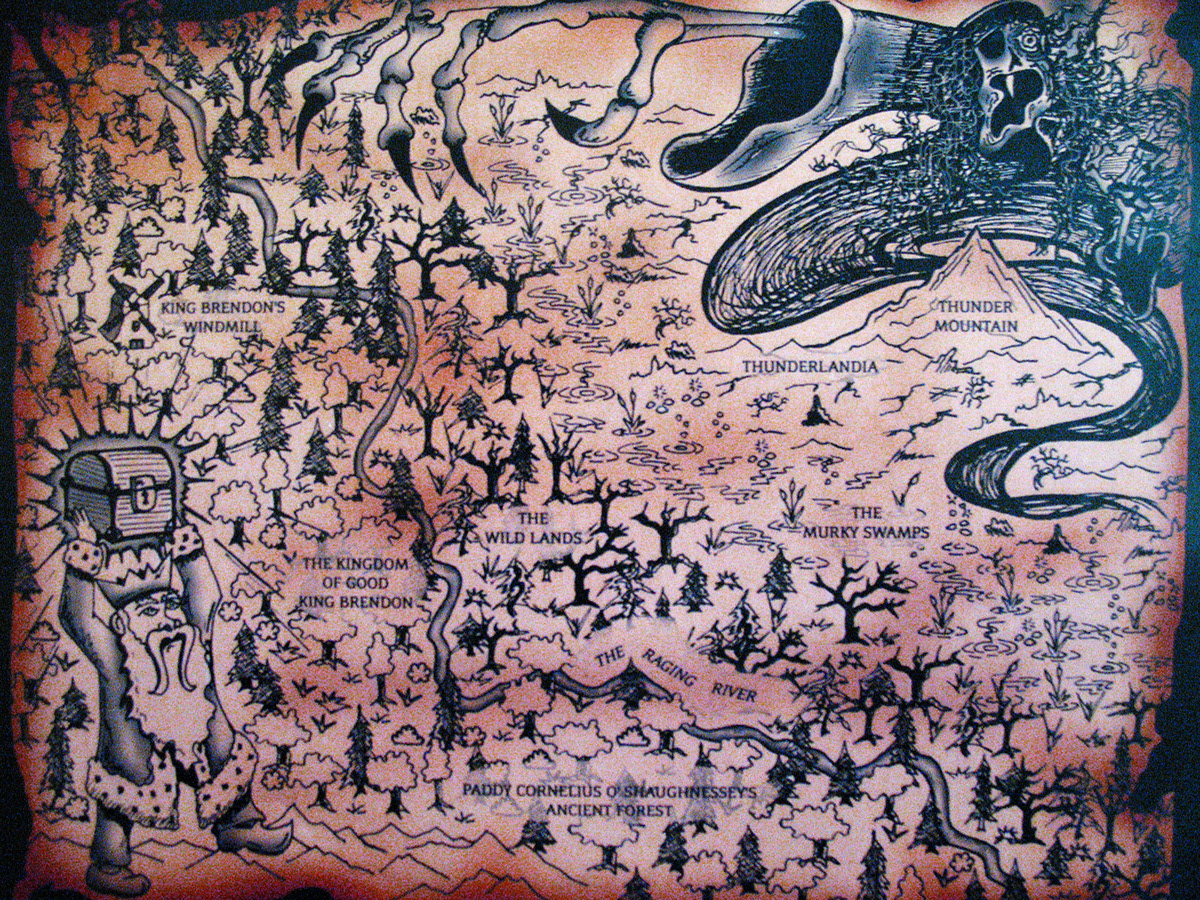 KING BRENDON'S
WINDMILL
THUNDER
MOUNTAIN
THUNDERLANDIA
THE
WILD LANDS
THE
MURKY SWAMPS
THE KINGDOM
OF GOOD
KING BRENDON
THE RAGING RIVER
PADDY CORNELIUS O'SHAUGHNESSEY'S
ANCIENT FOREST